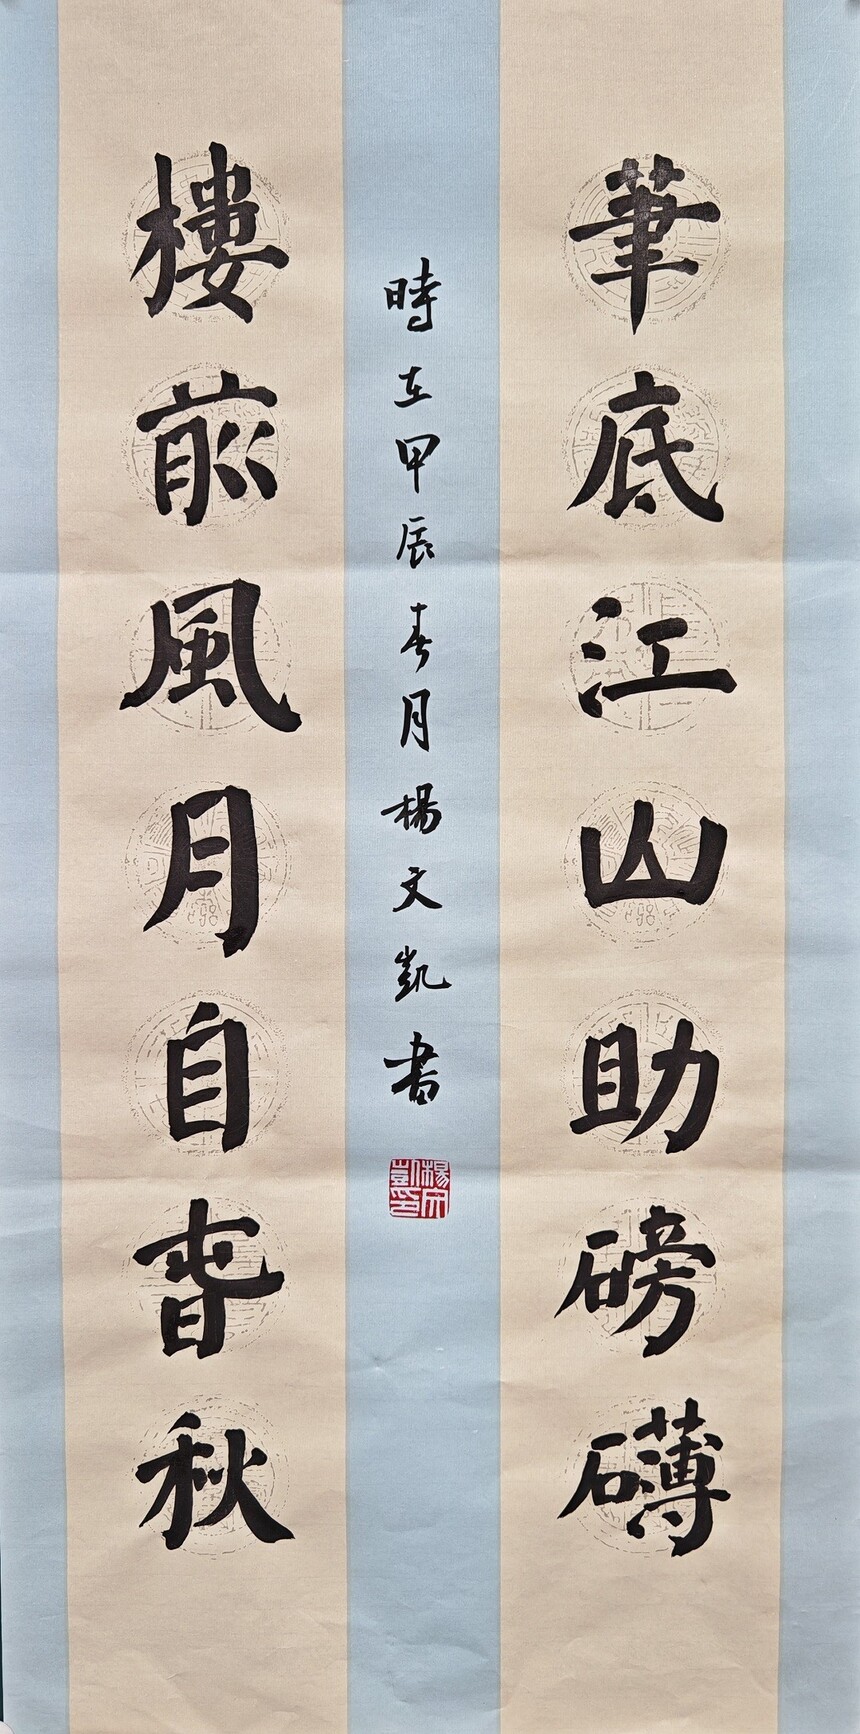 筆底江山助磅礴
樓前風月自春秋
時在甲辰春月楊文凱書
楊文凱印